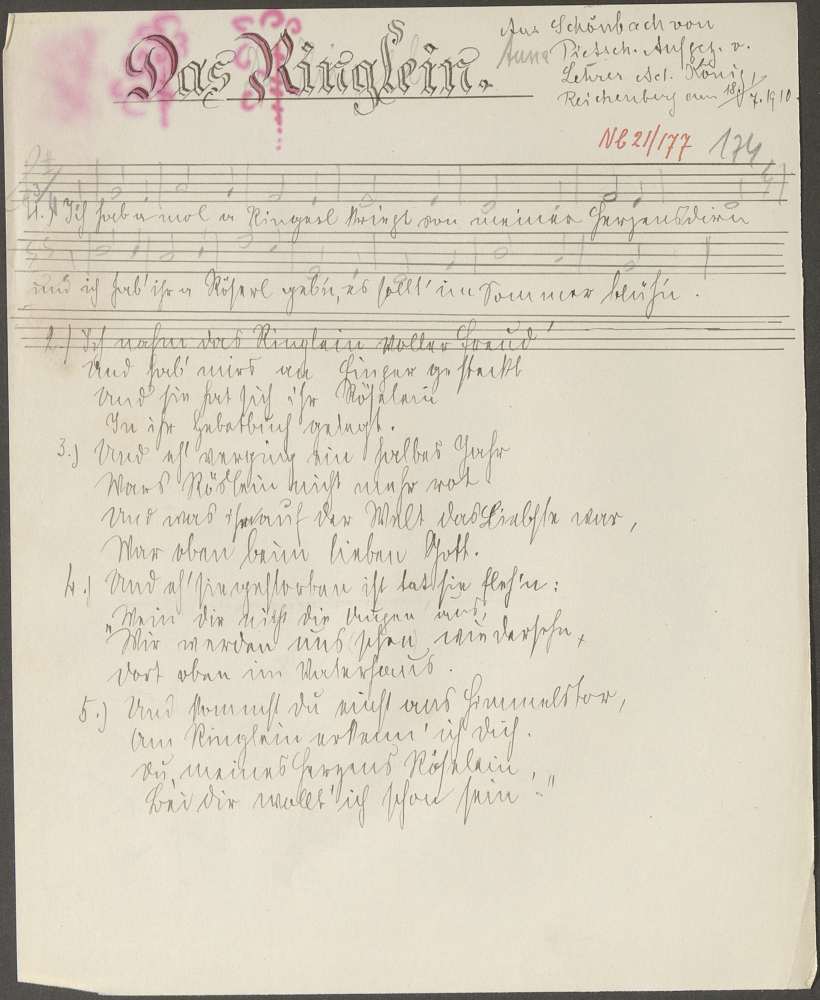 Das Ringlein.
Aus Schönbach von
Anna Pietsch. Aufgez. v.
Lehrer Ad. König,
Reichenberg am 18./7. 1910.
Nb 21/177 174
1.) Ich hab a mol a Ringerl kriegt von meiner Herzensdirn
und ich hab' ihr a Röserl geb'n, es sollt' im Sommer blüh'n.
2.) Ich nahm das Ringlein voller Freud'
Und hab' mirs an Finger gesteckt
Und sie hat sich ihr Röselein
In ihr Gebetbuch gelegt.
3.) Und eh' verging ein halbes Jahr
Wars Röslein nicht mehr rot
Und was ihr auf der Welt das Liebste war,
War oben beim lieben Gott.
4.) Und eh' sie gestorben ist tat sie fleh'n:
"Wein' dir nicht die Augen aus,
Wir werden uns schon wiedersehn,
dort oben im Vaterhaus.
5.) Und kommst du einst ans Himmelstor,
Am Ringlein erkenn' ich dich.
Du, meines Herzens Röselein
Bei dir wollt' ich schon sein."